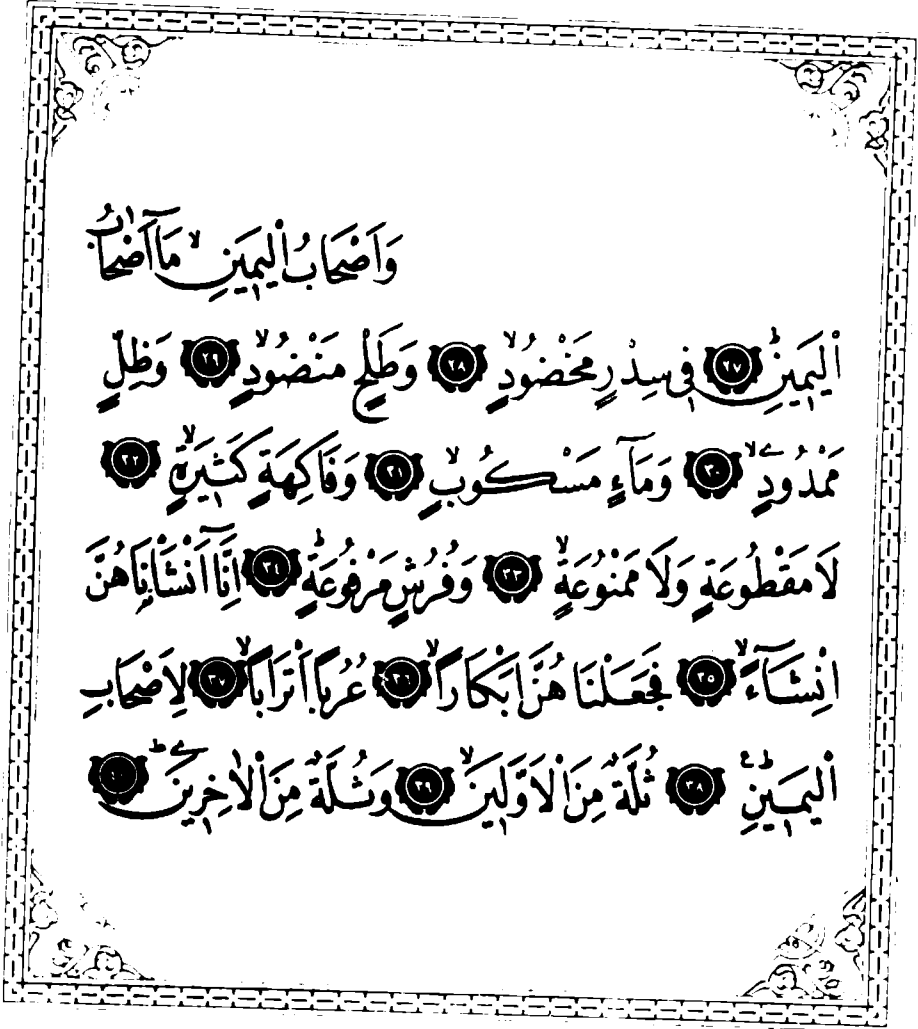 وَاَصْحَابُ الْيَمينِۙ مَٓا اَصْحَابُ
الْيَمينِۜ ﴿٢٧﴾ في سِدْرٍ مَخْضُودٍۙ ﴿٢٨﴾ وَطَلْحٍ مَنْضُودٍۙ ﴿٢٩﴾ وَظِلٍّ
مَمْدُودٍۙ ﴿٣٠﴾ وَمَٓاءٍ مَسْكُوبٍۙ ﴿٣١﴾ وَفَاكِهَةٍ كَثيرَةٍۙ ﴿٣٢﴾
لَا مَقْطُوعَةٍ وَلَا مَمْنُوعَةٍۙ ﴿٣٣﴾ وَفُرُشٍ مَرْفُوعَةٍۜ ﴿٣٤﴾ اِنَّٓا اَنْشَأْنَاهُنَّ
اِنْشَٓاءًۙ ﴿٣٥﴾ فَجَعَلْنَاهُنَّ اَبْكَارًاۙ ﴿٣٦﴾ عُرُبًا اَتْرَابًاۙ ﴿٣٧﴾ لِاَصْحَابِ
الْيَمينِۜ ﴿٣٨﴾ ثُلَّةٌ مِنَ الْاَوَّلينَۙ ﴿٣٩﴾ وَثُلَّةٌ مِنَ الْاٰخِرينَۜ ﴿٤٠﴾